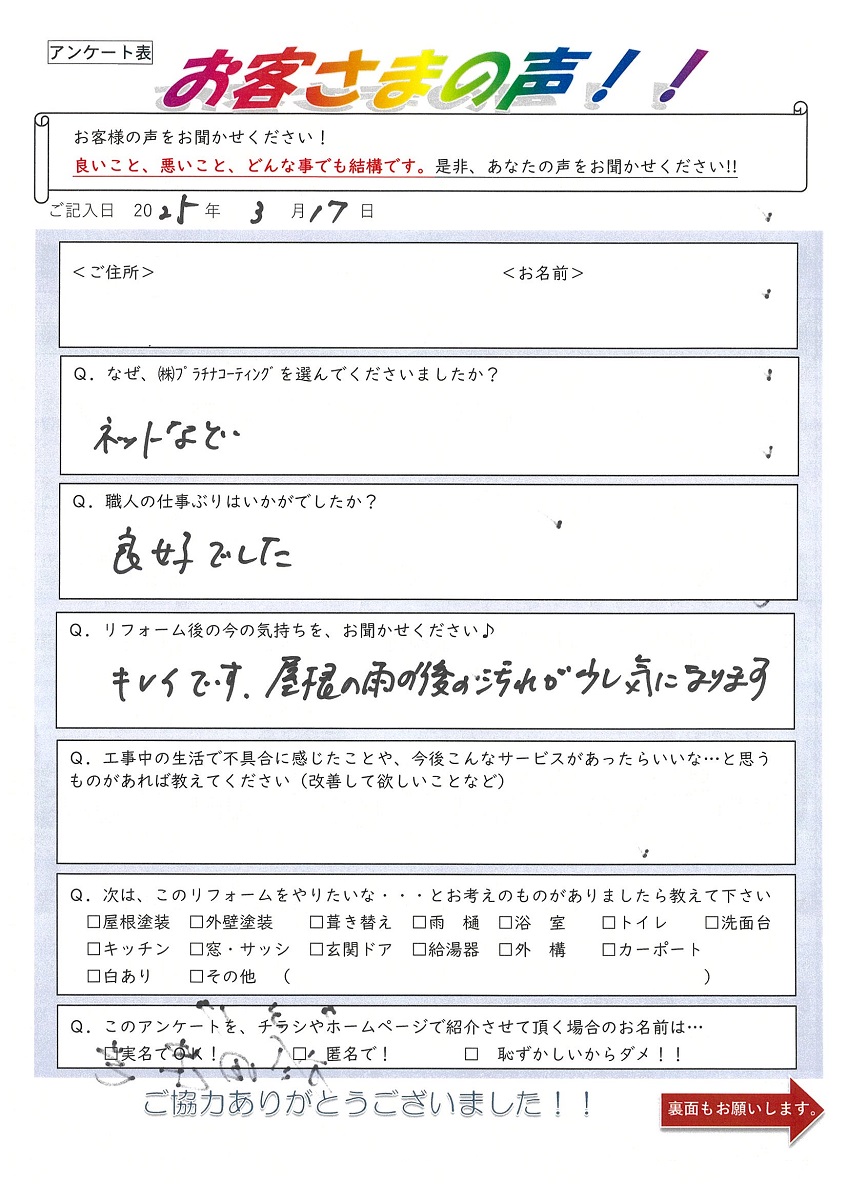 アンケート表
お客さまの声！！
お客様の声をお聞かせください！
良いこと、悪いこと、どんな事でも結構です。是非、あなたの声をお聞かせください!!
ご記入日　2025年　3　月17日
＜ご住所＞　＜お名前＞
Q．なぜ、㈱ﾌﾟﾗﾁﾅｺｰﾃｨﾝｸﾞを選んでくださいましたか？
ネットなどで
Q．職人の仕事ぶりはいかがでしたか？
良好でした
Q．リフォーム後の今の気持ちを、お聞かせください♪
キレイです。屋根の雨の後の汚れが少し気になります
Q．工事中の生活で不具合に感じたことや、今後こんなサービスがあったらいいな…と思う
ものがあれば教えてください（改善して欲しいことなど）
Q．次は、このリフォームをやりたいな・・・とお考えのものがありましたら教えて下さい
□屋根塗装　□外壁塗装　□葺き替え　□雨　樋　□浴　室　□トイレ　□洗面台
□キッチン　□窓・サッシ　□玄関ドア　□給湯器　□外　構　□カーポート
□白あり　□その他　（　）
Q．このアンケートを、チラシやホームページで紹介させて頂く場合のお名前は…
□実名でOK！　□　匿名で！　□　恥ずかしいからダメ！！
ご協力ありがとうございました！！
裏面もお願いします。